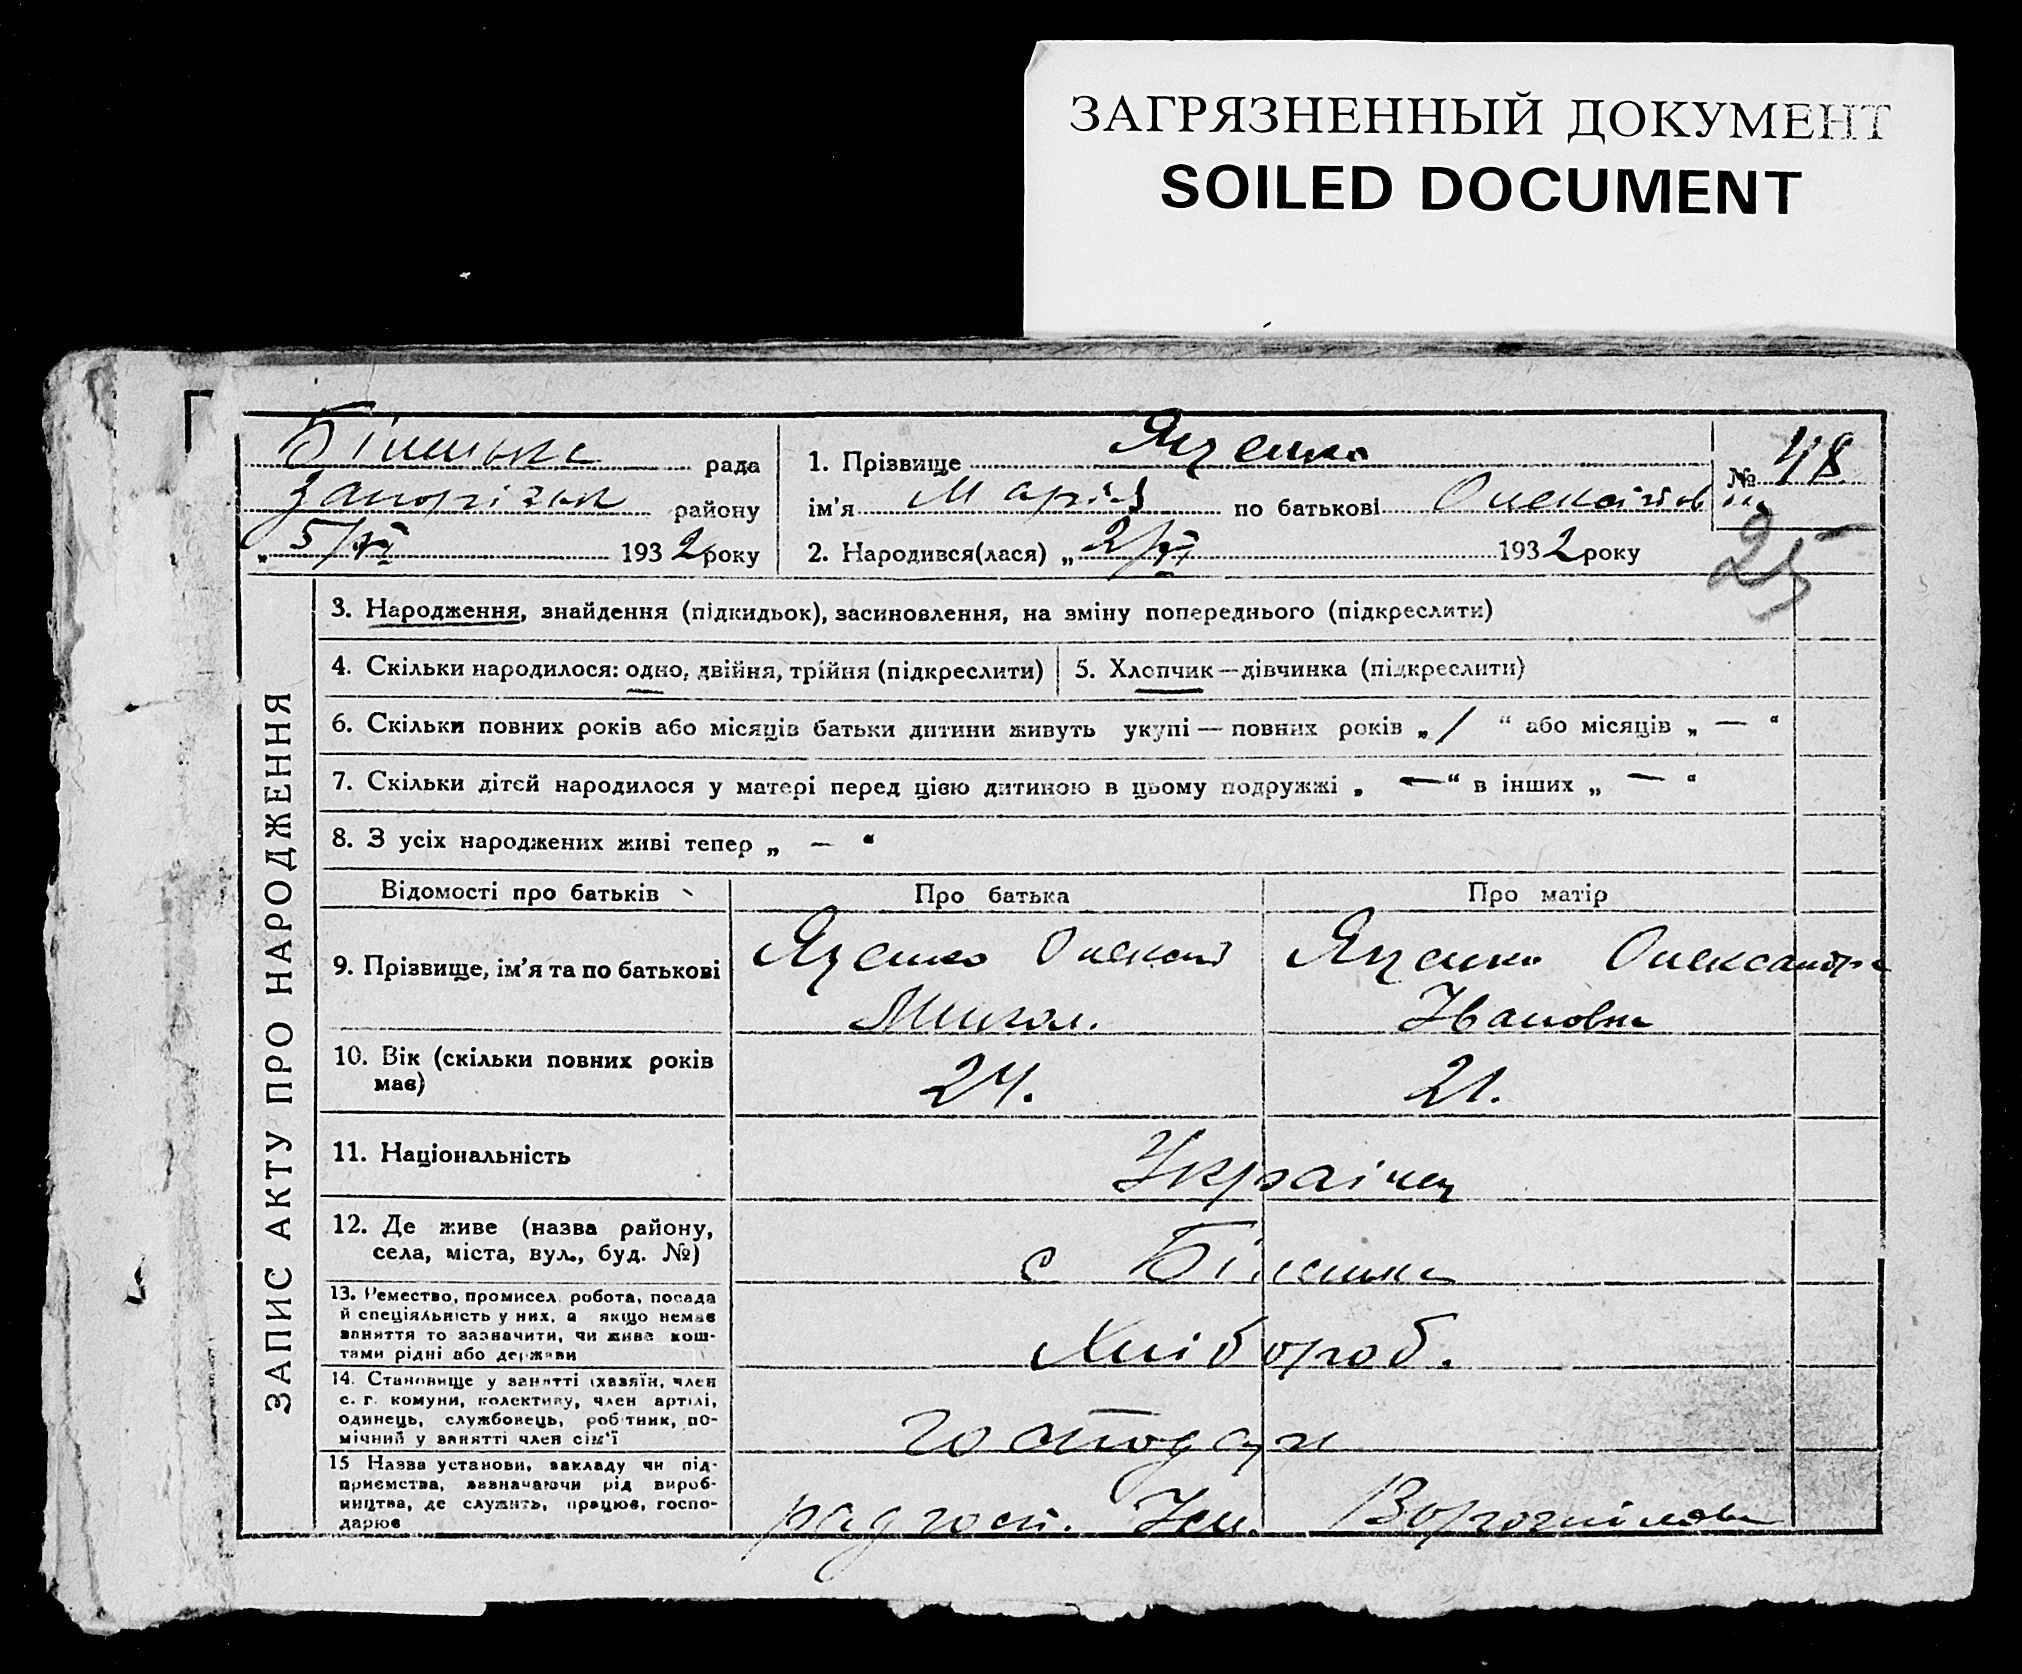 ЗАГРЯЗНЕННЫЙ ДОКУМЕНТ
SOILED DOCUMENT
рада
району
„ 5/VI 1932 року
1. Прізвище Яценко
ім'я Марія по батькові Олексіївна
2. Народився(лася) „ 2/VI 1932 року
№ 48
25
ЗАПИС АКТУ ПРО НАРОДЖЕННЯ
3. Народження, знайдення (підкидьок), засиновлення, на зміну попереднього (підкреслити)
4. Скільки народилося: одно, двійня, трійня (підкреслити)
5. Хлопчик — дівчинка (підкреслити)
6. Скільки повних років або місяців батьки дитини живуть укупі — повних років „ 1 “ або місяців „ — “
7. Скільки дітей народилося у матері перед цією дитиною в цьому подружжі „ — “ в інших „ — “
8. З усіх народжених живі тепер „ — “
Відомості про батьків
Про батька
Про матір
9. Прізвище, ім'я та по батькові
Яценко Олексій
Микол.
Яценко Олександра
Івановна
10. Вік (скільки повних років
має)
24.
21.
11. Національність
Українц
12. Де живе (назва району,
села, міста, вул., буд. №)
с
13. Ремество, промисел, робота, посада
й спеціяльність у них, а якщо немає
заняття то зазначити, чи живе кош-
тами рідні або держави
Хлібороб.
14. Становище у занятті (хазяїн, член
с. г. комуни, колективу, член артілі,
одинець, службовець, робітник, по-
мічний у занятті член сім'ї
господар
15 Назва установи, закладу чи під-
приємства, зазначаючи рід вироб-
ництва, де служить, працює, госпо-
дарює
радгосп. Ім. Ворошілова